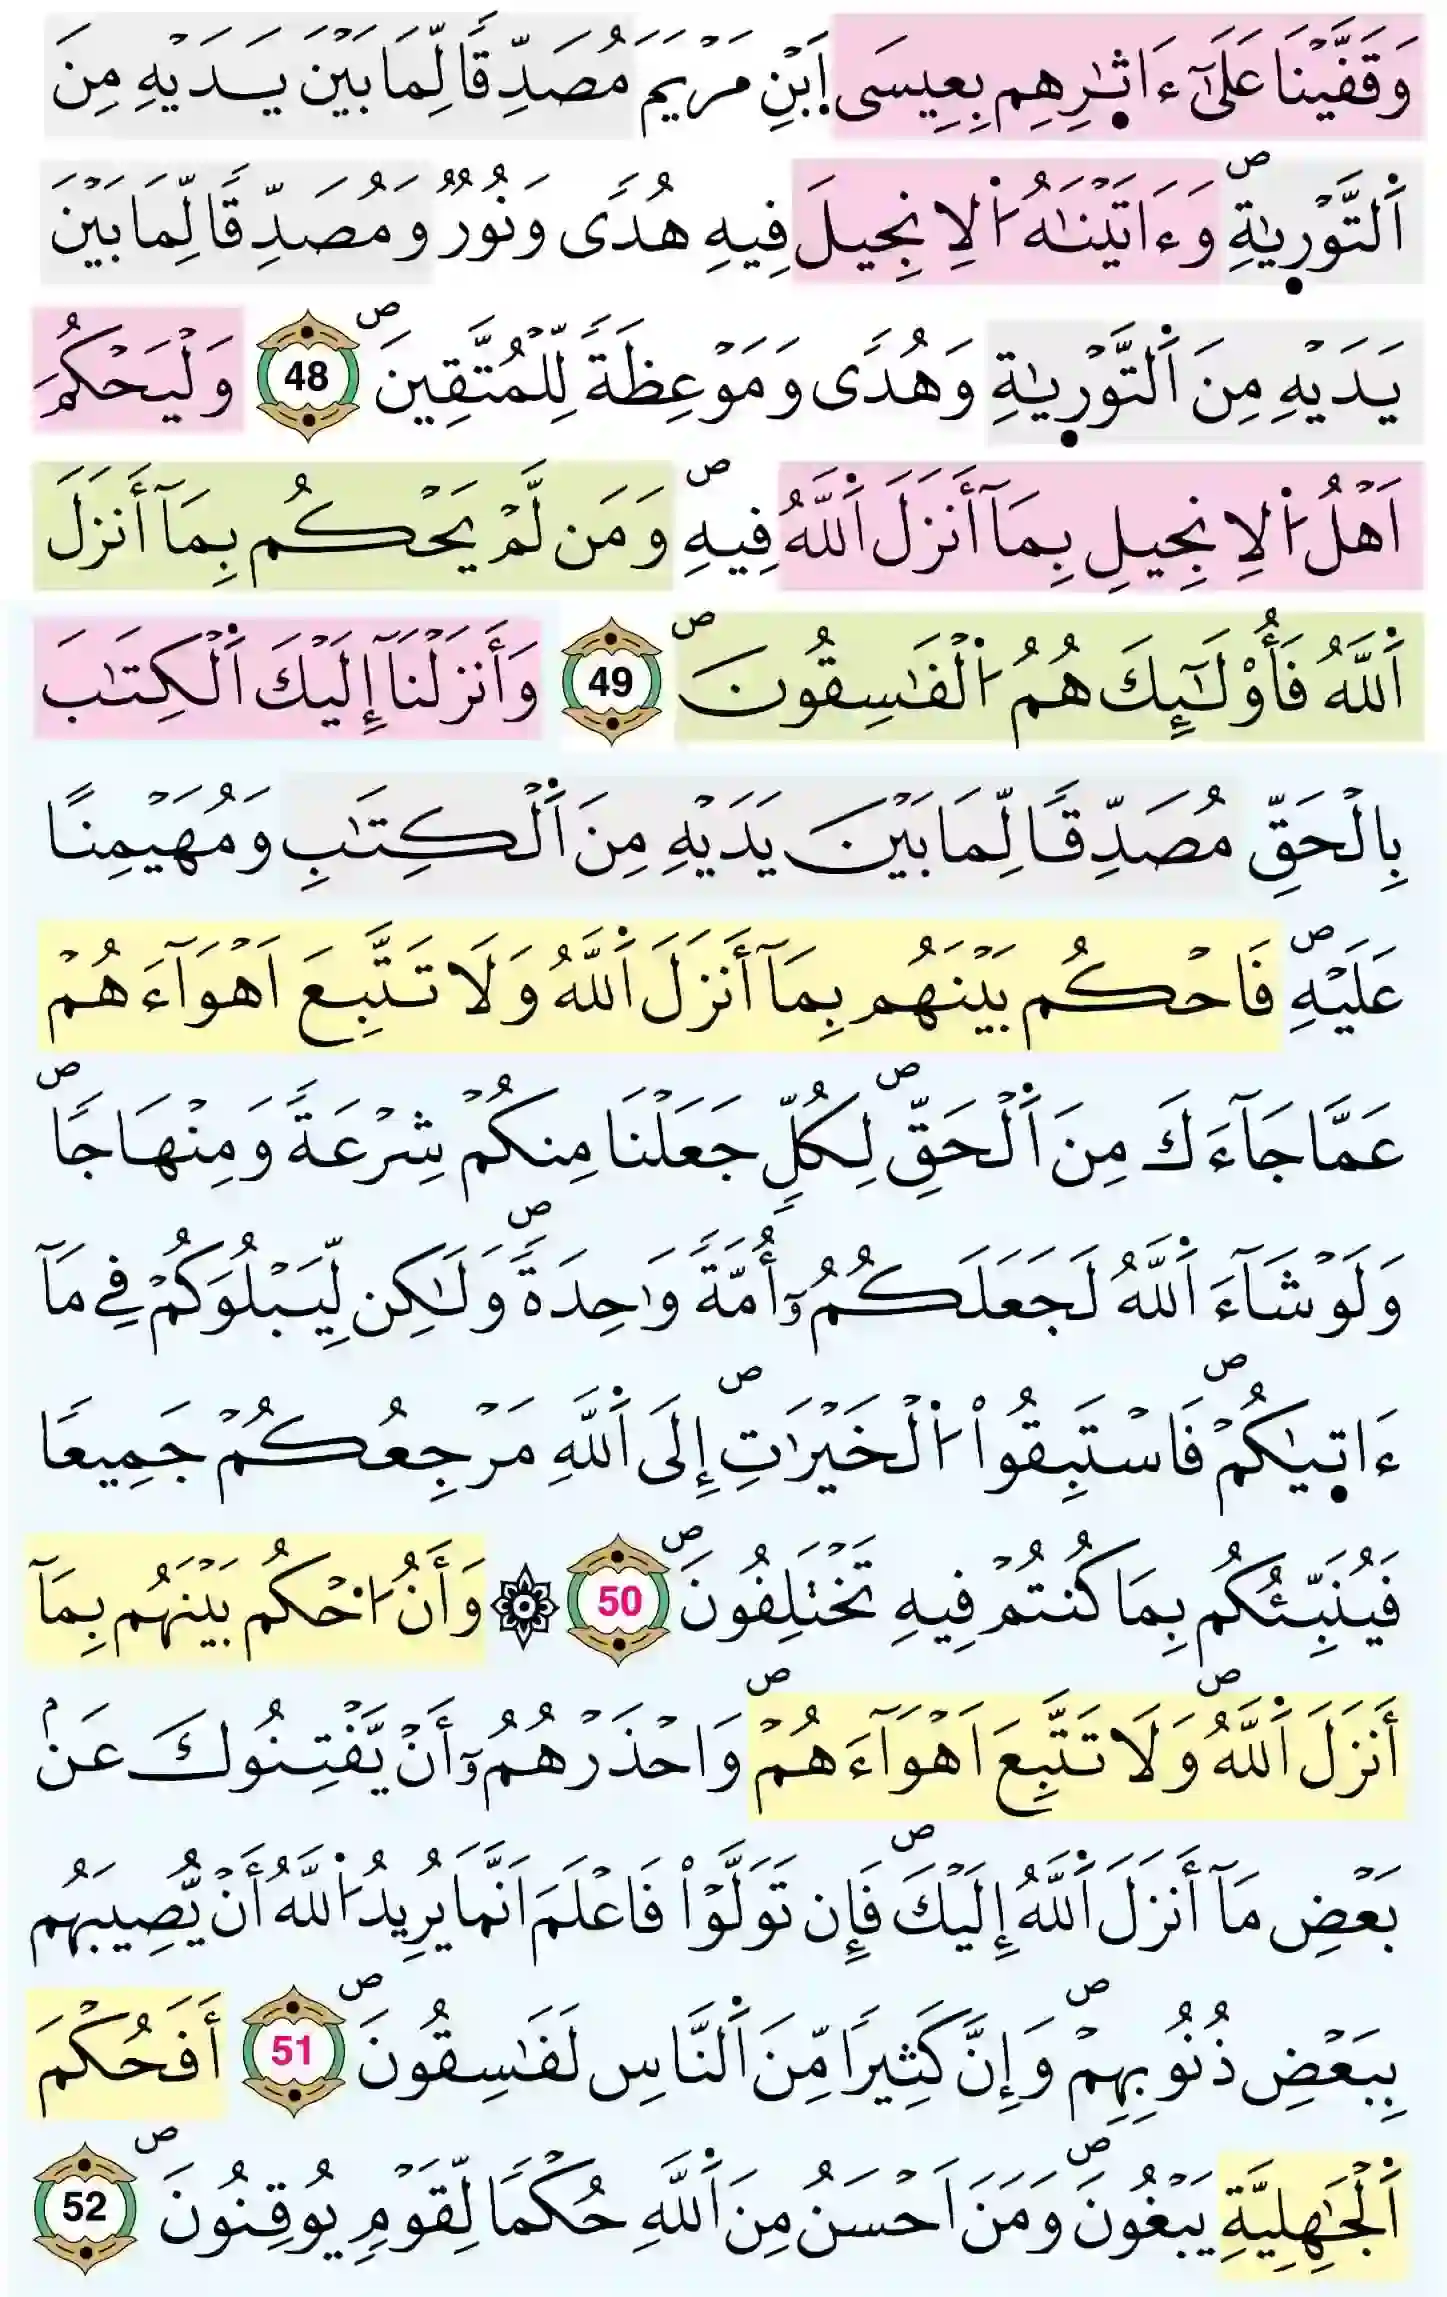 وَقَفَّيْنَا عَلَىٰٓ ءَاثٰ۪رِهِم بِعِيسَى اَ۪بْنِ مَرْيَمَ مُصَدِّقاٗ لِّمَا بَيْنَ يَدَيْهِ مِنَ
اَ۬لتَّوْر۪يٰةِۖ وَءَاتَيْنَٰهُ اُ۬لِانجِيلَ فِيهِ هُدٗى وَنُورٞ وَمُصَدِّقاٗ لِّمَا بَيْنَ
يَدَيْهِ مِنَ اَ۬لتَّوْر۪يٰةِ وَهُدٗى وَمَوْعِظَةٗ لِّلْمُتَّقِينَۖ 48 وَلْيَحْكُمَ
اَهْلُ اُ۬لِانجِيلِ بِمَآ أَنزَلَ اَ۬للَّهُ فِيهِۖ وَمَن لَّمْ يَحْكُم بِمَآ أَنزَلَ
اَ۬للَّهُ فَأُوْلَٰٓئِكَ هُمُ اُ۬لْفَٰسِقُونَۖ 49 وَأَنزَلْنَآ إِلَيْكَ اَ۬لْكِتَٰبَ
بِالْحَقِّ مُصَدِّقاٗ لِّمَا بَيْنَ يَدَيْهِ مِنَ اَ۬لْكِتَٰبِ وَمُهَيْمِناً
عَلَيْهِۖ فَاحْكُم بَيْنَهُم بِمَآ أَنزَلَ اَ۬للَّهُ وَلَا تَتَّبِعَ اَهْوَآءَهُمْ
عَمَّا جَآءَكَ مِنَ اَ۬لْحَقِّۖ لِكُلّٖ جَعَلْنَا مِنكُمْ شِرْعَةٗ وَمِنْهَاجاٗۖ
وَلَوْ شَآءَ اَ۬للَّهُ لَجَعَلَكُمُۥٓ أُمَّةٗ وَٰحِدَةٗۖ وَلَٰكِن لِّيَبْلُوَكُمْ فِے مَآ
ءَات۪يٰكُمْۖ فَاسْتَبِقُواْ اُ۬لْخَيْرَٰتِۖ إِلَى اَ۬للَّهِ مَرْجِعُكُمْ جَمِيعاٗ
فَيُنَبِّئُكُم بِمَا كُنتُمْ فِيهِ تَخْتَلِفُونَۖ 50 ۞ وَأَنُ اُ۟حْكُم بَيْنَهُم بِمَآ
أَنزَلَ اَ۬للَّهُۖ وَلَا تَتَّبِعَ اَهْوَآءَهُمْۖ وَاحْذَرْهُمُۥٓ أَنْ يَّفْتِنُوكَ عَنۢ
بَعْضِ مَآ أَنزَلَ اَ۬للَّهُ إِلَيْكَۖ فَإِن تَوَلَّوْاْ فَاعْلَمَ اَنَّمَا يُرِيدُ اُ۬للَّهُ أَنْ يُّصِيبَهُم
بِبَعْضِ ذُنُوبِهِمْۖ وَإِنَّ كَثِيراٗ مِّنَ اَ۬لنَّاسِ لَفَٰسِقُونَۖ 51 أَفَحُكْمَ
اَ۬لْجَٰهِلِيَّةِ يَبْغُونَۖ وَمَنَ اَحْسَنُ مِنَ اَ۬للَّهِ حُكْماٗ لِّقَوْمٖ يُوقِنُونَۖ 52